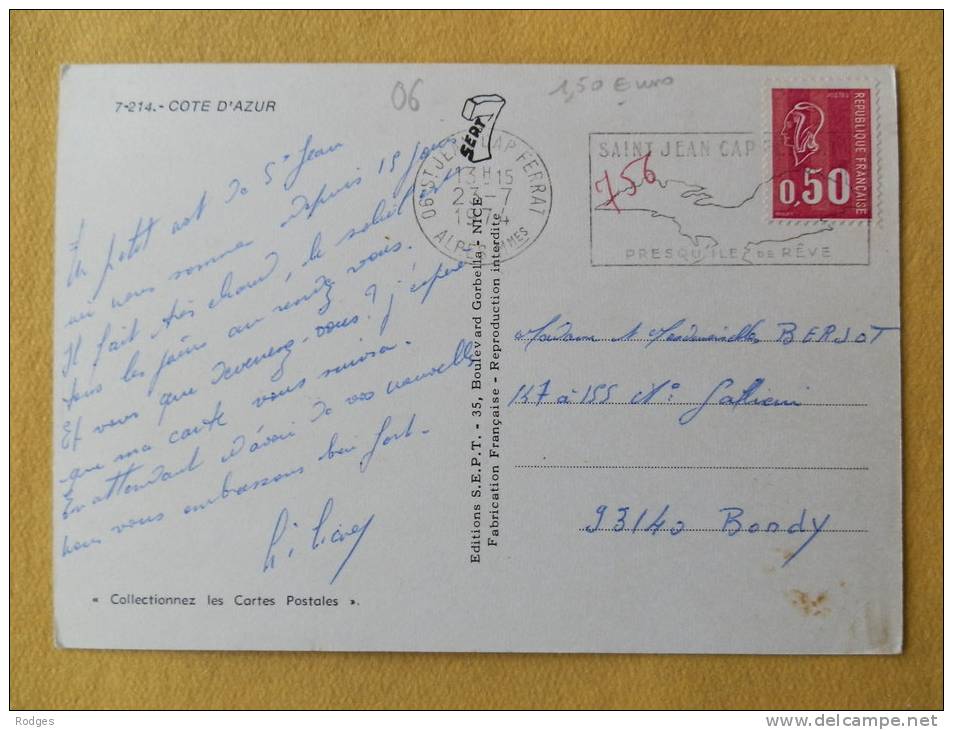 7-214.- COTE D'AZUR
06
1,50 Euro
Un petit mot de St Jean
où nous sommes depuis 15 jours
Il fait très chaud, le soleil est
tous les jours au rendez vous.
Et vous que devenez-vous? j'espère
que ma carte vous suivra.
En attendant d'avoir de vos nouvelles
nous vous embrassons bien fort.
« Collectionnez les Cartes Postales ».
SEPT
7
06 ST JEAN CAP FERRAT
13H15
23-7
1974
ALPES MMES
SAINT JEAN CAP
756
PRESQU'ILE DE RÊVE
POSTES
0,50
REPUBLIQUE FRANÇAISE
Editions S.E.P.T. - 35, Boulevard Gorbella - NICE
Fabrication Française - Reproduction interdite
Madame & Mesdemoiselles BERJOT
147 à 155 Av: Gallieni
93140 Bondy
Rodges
www.delcampe.net